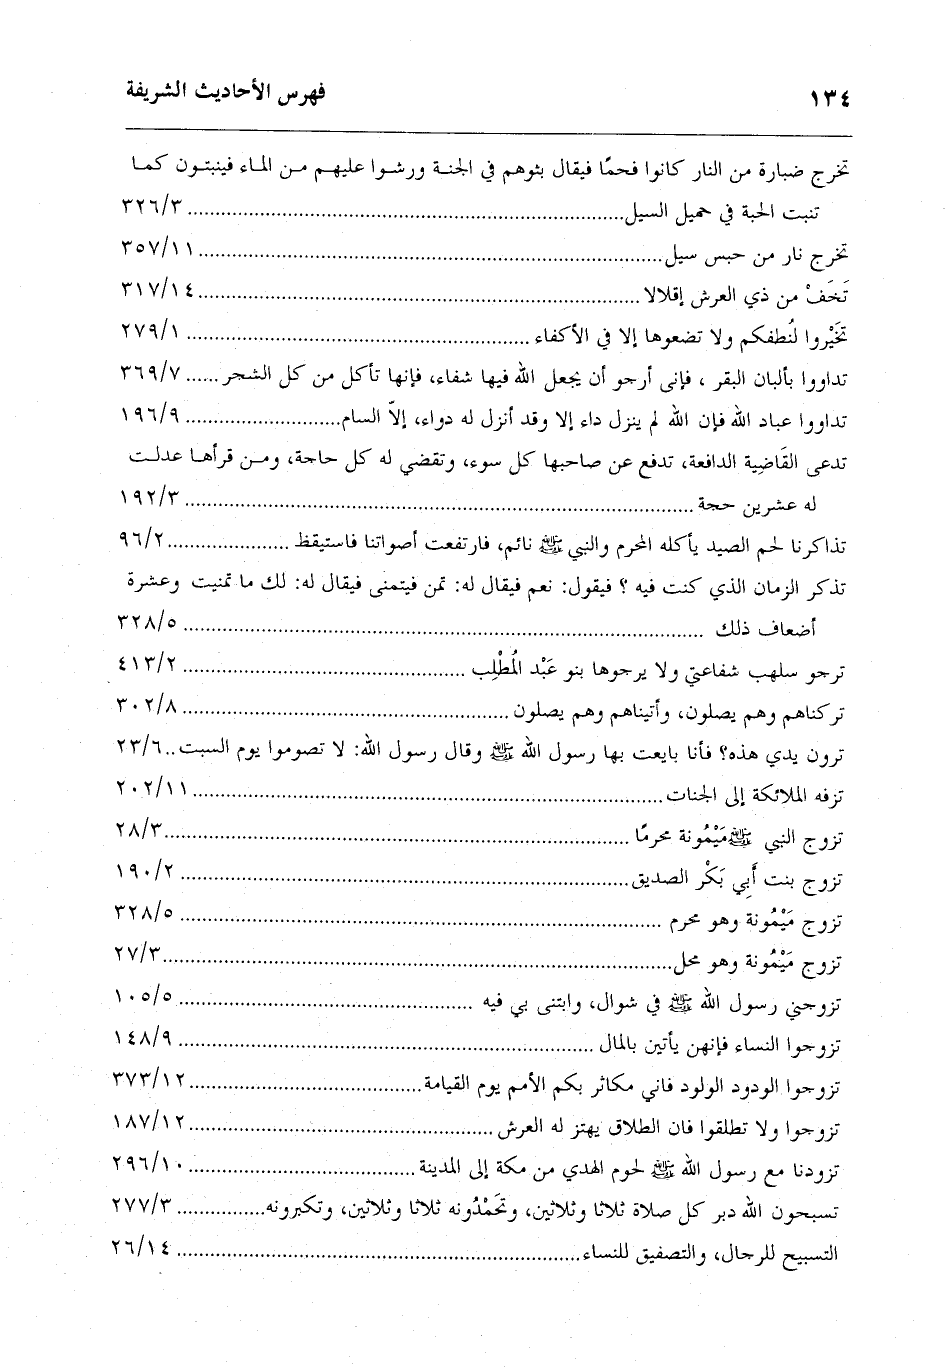 ١٣٤ فهرس الأحاديث الشريفة
تخرج ضبارة من النار كانوا فحمًا فيقال بثوهم في الجنة ورشوا عليهم من الماء فينبتون كما
تنبت الحبة في حميل السيل ........ ٣٢٦/٣
تخرج نار من حبس سيل ........ ٣٥٧/١١
تَخَفْ من ذي العرش إقلالا ........ ٣١٧/١٤
تَخَيْروا لنُطفكم ولا تضعوها إلا في الأكفاء ........ ٢٧٩/١
تداووا بألبان البقر ، فإنى أرجو أن يجعل الله فيها شفاء، فإنها تأكل من كل الشجر ...... ٣٦٩/٧
تداووا عباد الله فإن الله لم ينزل داء إلا وقد أنزل له دواء، إلاّ السام ........ ١٩٦/٩
تدعى القَاضية الدافعة، تدفع عن صاحبها كل سوء، وتقضي له كل حاجة، ومن قرأها عدلت
له عشرين حجة ........ ١٩٢/٣
تذاكرنا لحم الصيد يأكله المحرم والنبي ﷺ نائم، فارتفعت أصواتنا فاستيقظ ........ ٩٦/٢
تذكر الزمان الذي كنت فيه ؟ فيقول: نعم فيقال له: تمن فيتمنى فيقال له: لك ما تمنيت وعشرة
أضعاف ذلك ........ ٣٢٨/٥
ترجو سلهب شفاعتي ولا يرجوها بنو عَبْد المُطْلِب ........ ٤١٣/٢
تركناهم وهم يصلون، وأتيناهم وهم يصلون ........ ٣٠٢/٨
ترون يدي هذه؟ فأنا بايعت بها رسول الله ﷺ وقال رسول الله: لا تصوموا يوم السبت .. ٢٣/٦
تزفه الملائكة إلى الجنات ........ ٢٠٢/١١
تزوج النبي ﷺ مَيْمُونة محرمًا ........ ٢٨/٣
تزوج بنت أَبِي بَكْر الصديق ........ ١٩٠/٢
تزوج مَيْمُونة وهو محرم ........ ٣٢٨/٥
تزوج مَيْمُونة وهو محل ........ ٢٧/٣
تزوجني رسول الله ﷺ في شوال، وابتنى بي فيه ........ ١٠٥/٥
تزوجوا النساء فإنهن يأتين بالمال ........ ١٤٨/٩
تزوجوا الودود الولود فاني مكاثر بكم الأمم يوم القيامة ........ ٣٧٣/١٢
تزوجوا ولا تطلقوا فان الطلاق يهتز له العرش ........ ١٨٧/١٢
تزودنا مع رسول الله ﷺ لحوم الهدي من مكة إلى المدينة ........ ٢٩٦/١٠
تسبحون الله دبر كل صلاة ثلاثا وثلاثين، وتَحَمْدُونه ثلاثا وثلاثين، وتكبرونه ........ ٢٧٧/٣
التسبيح للرجال، والتصفيق للنساء ........ ٢٦/١٤